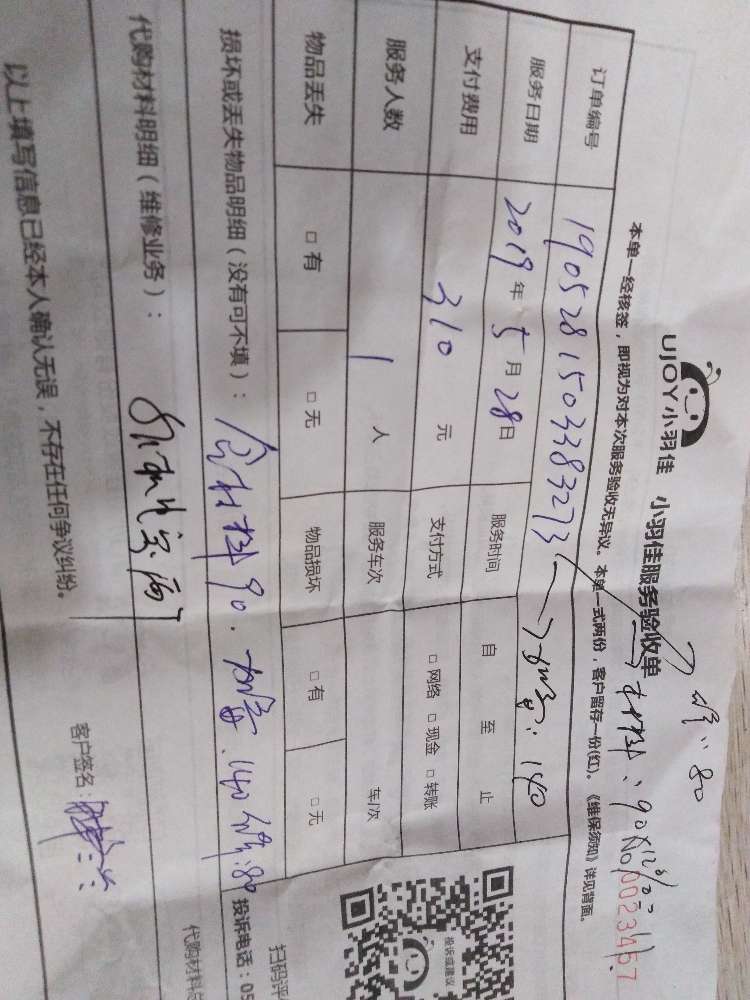 UJOY小羽佳 小羽佳服务验收单
80
本单一经核签，即视为对本次服务验收无异议。本单一式两份，客户留存一份(红)。《维保须知》详见背面。
材料：90×12%
No 0023457
订单编号 1905281503383273
140
服务日期 2019年5月28日 服务时间 自 至 止
支付费用 310 元 支付方式 □网络 □现金 □转账
服务人数 1 人 服务车次 车/次
物品丢失 □有 □无 物品损坏 □有 □无
损坏或丢失物品明细（没有可不填）： 材料90. 140 80
代购材料明细（维修业务）：
以上填写信息已经本人确认无误，不存在任何争议纠纷。
客户签名：
投诉或建议
扫码评
投诉电话：05
代购材料